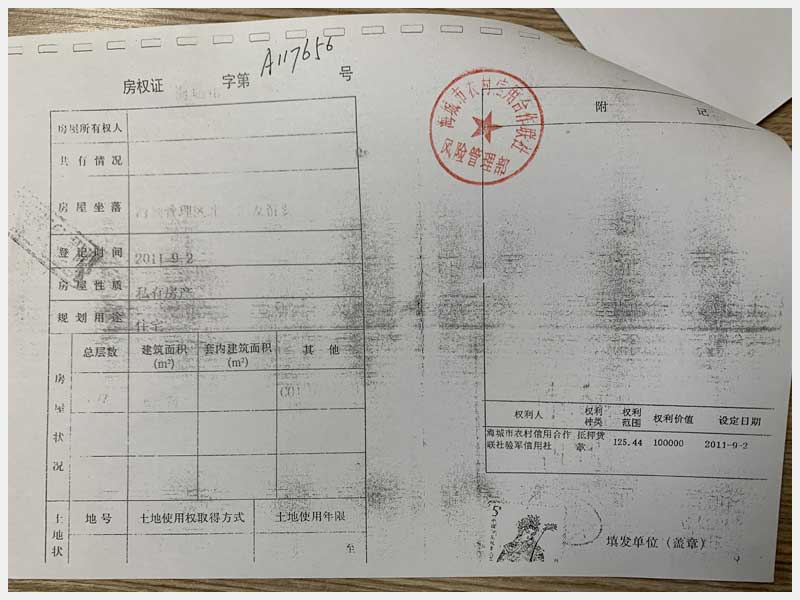 A117656
房权证 字第 号
房屋所有权人
共有情况
房屋坐落
登记时间 2011-9-2
房屋性质 私有房产
规划用途 住宅
房屋状况
总层数 建筑面积(m²) 套内建筑面积(m²) 其他
土地状
地号 土地使用权取得方式 土地使用年限
至
海城市农村信用合作联社
风险管理部
附 记
权利人 权利种类 权利范围 权利价值 设定日期
海城市农村信用合作 抵押贷 125.44 100000 2011-9-2
联社验军信用社 款
填发单位（盖章）